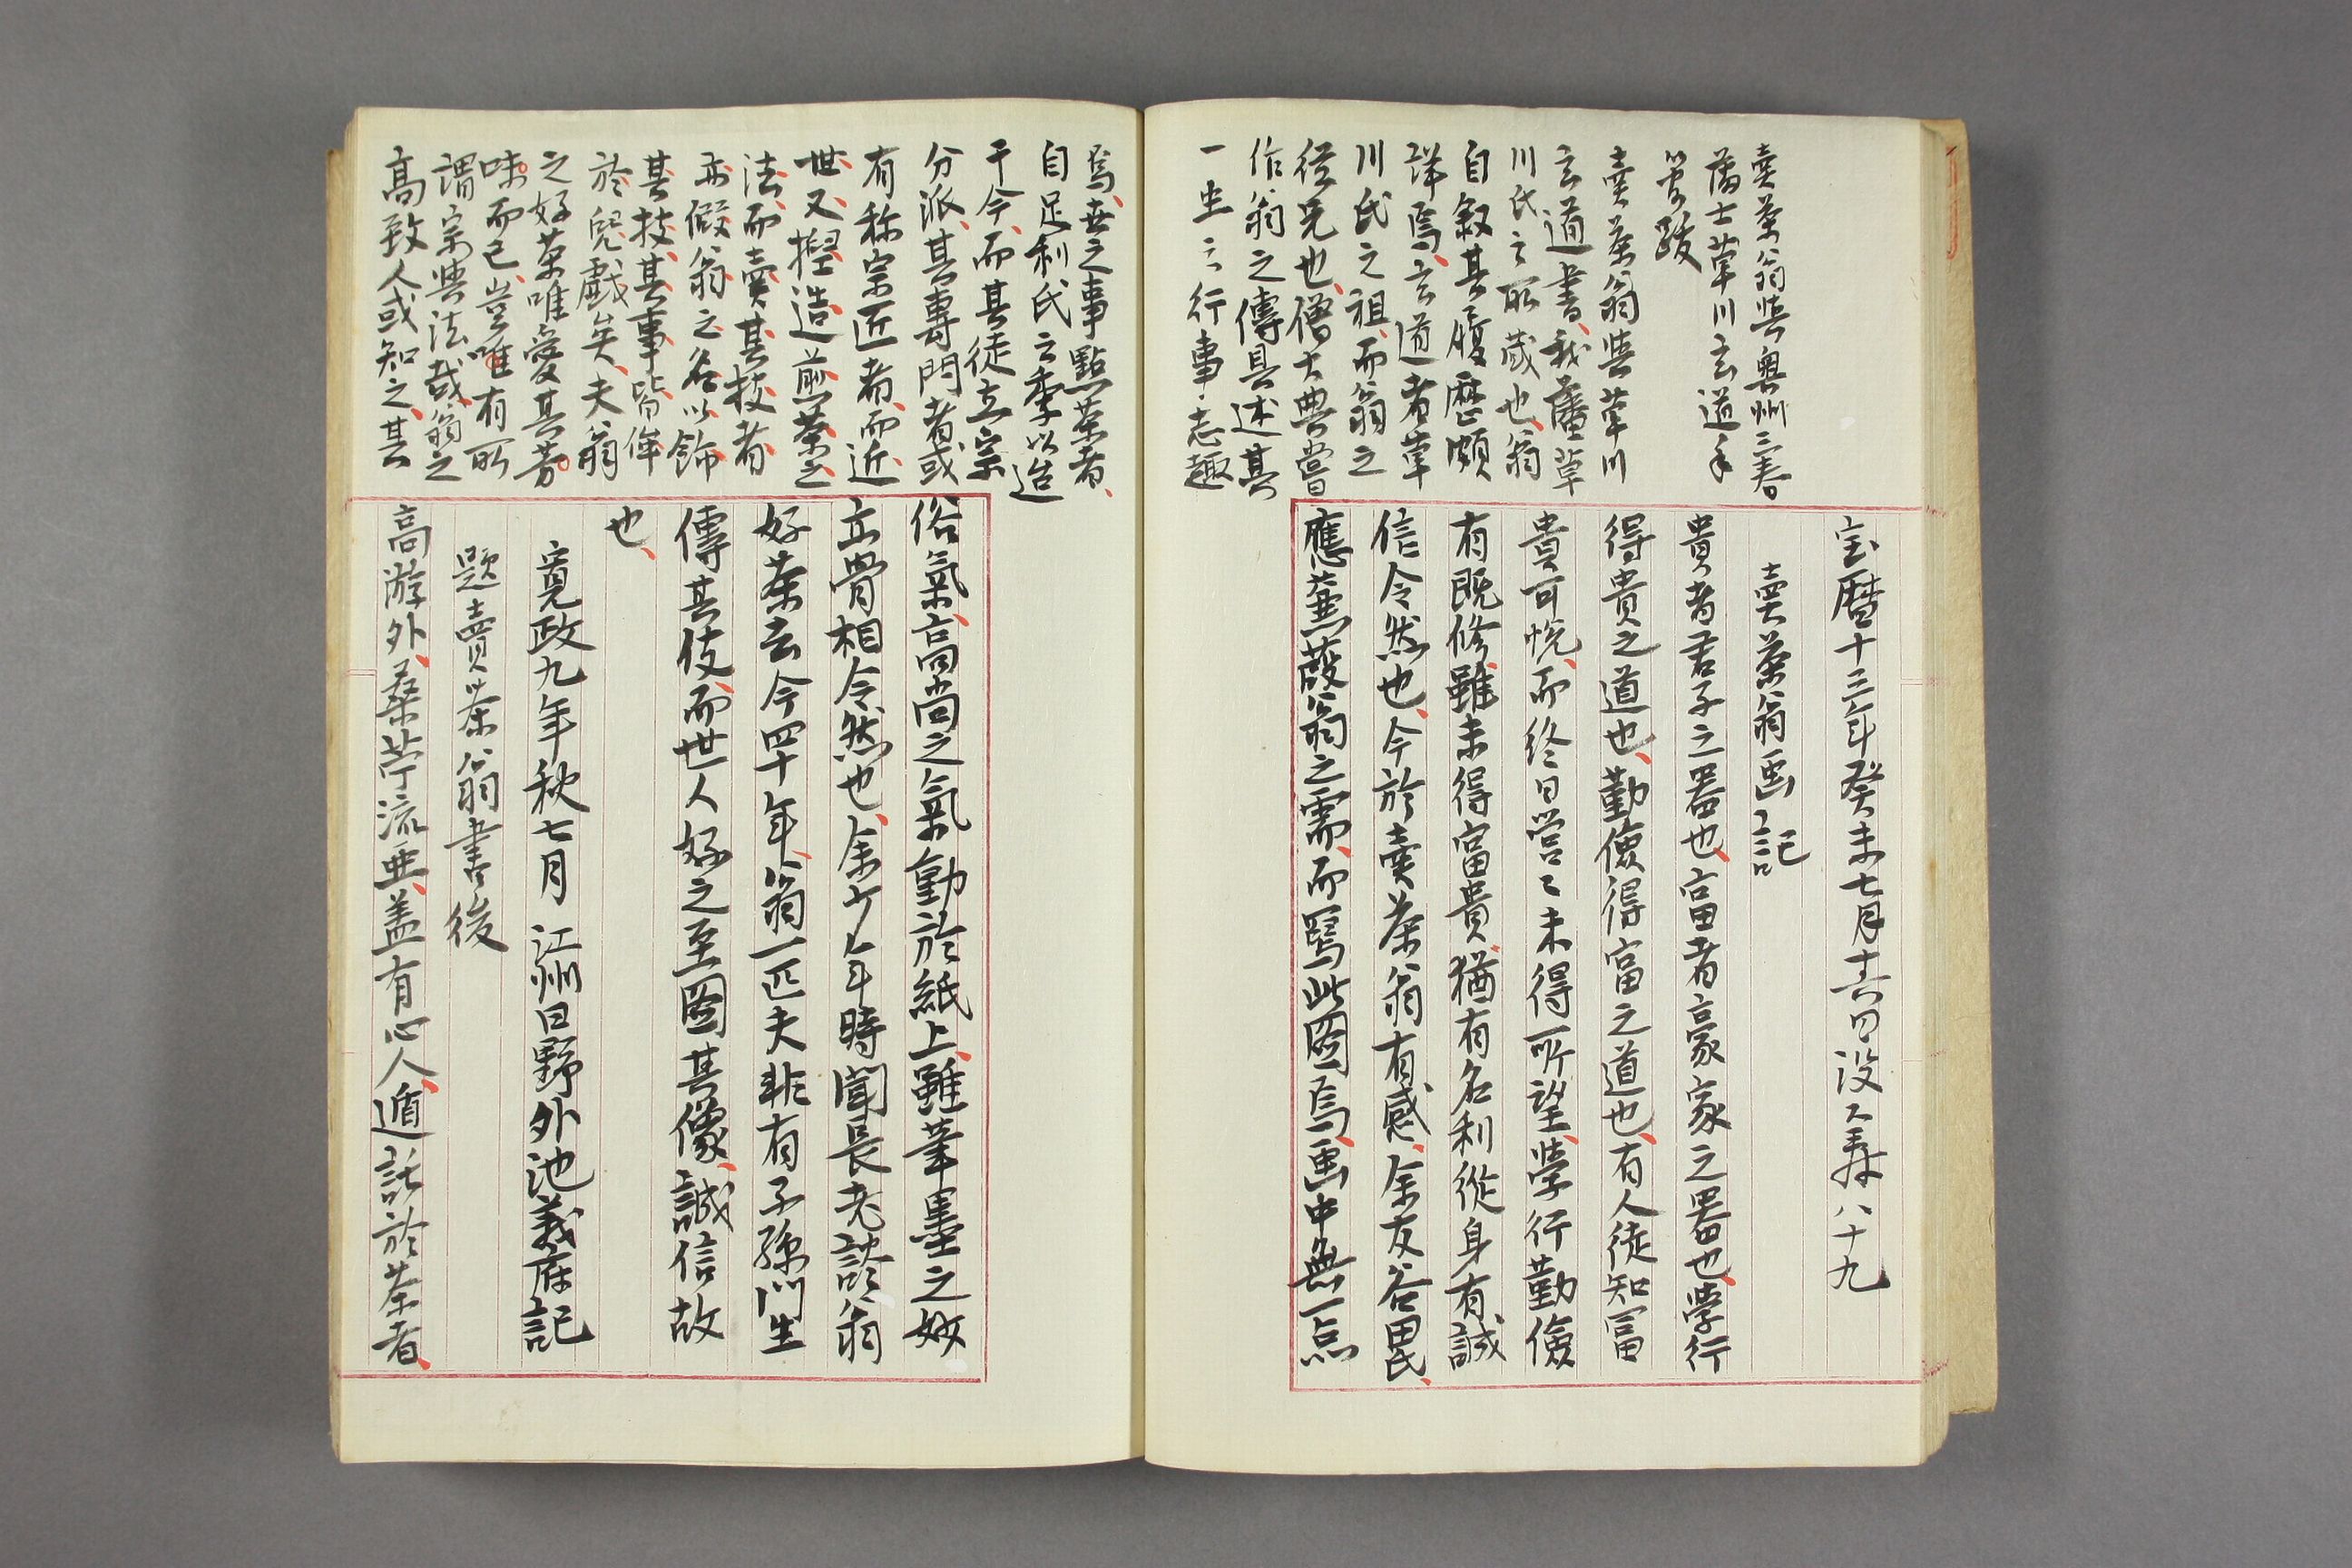 賣茶翁與奥州三春
藩士草川玄道手
簡跋
賣茶翁與草川
玄道書、我藩草
川氏之所蔵也、翁
自叙其履歴頗
詳焉、玄道者草
川氏之祖、而翁之
従兄也、僧大典嘗
作翁之傳具述其
一生之行事志趣
宝暦十三年癸未七月十六日没ス寿八十九
賣茶翁画記
貴者君子之器也、富者豪家之器也、学行
得貴之道也、勤儉得富之道也、有人徒知冨
貴可悦、而終日営々未得所望、学行勤儉
有既修、雖未得富貴、猶有名利従身有誠
信令然也、今於賣茶翁有感、余友谷田氏、
應蒹葭翁之需、而寫此圖焉、画中無一点
焉、世之事點茶者、
自足利氏之季以迄
于今、而其徒立宗
分派、其專門者或
有称宗匠者、而近
世又揑造煎茶之
法、而賣其技者
亦假翁之名以飾
其技、其事皆侔
於兒戯矣、夫翁
之好茶唯愛其芳
味而已、豈唯有所
謂宗與法哉、翁之
高致人或知之、其
俗氣、高尚之氣動於紙上、雖筆墨之妙
立骨相令然也、余少年時聞長老談翁
好茶云今四十年、翁一匹夫非有子孫門生
傳其伎、而世人好之至圖其像、誠信故
也、
寛政九年秋七月 江州日野外池義府記
題賣茶翁書後
高游外、桑苧流亜、盖有心人、遁託於茶者、